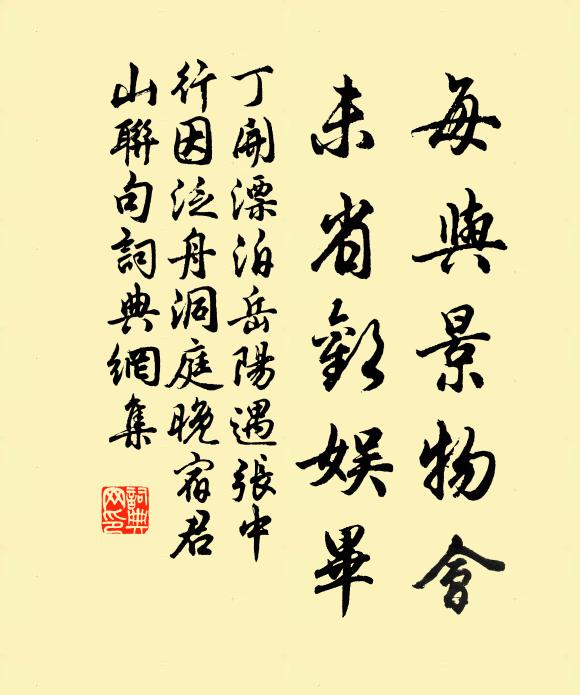 每與景物會
未省歡娛畢
丁開漂泊岳陽遇張中
行因泛舟洞庭晚宿君
山聯句詞典網集
詞典
网印